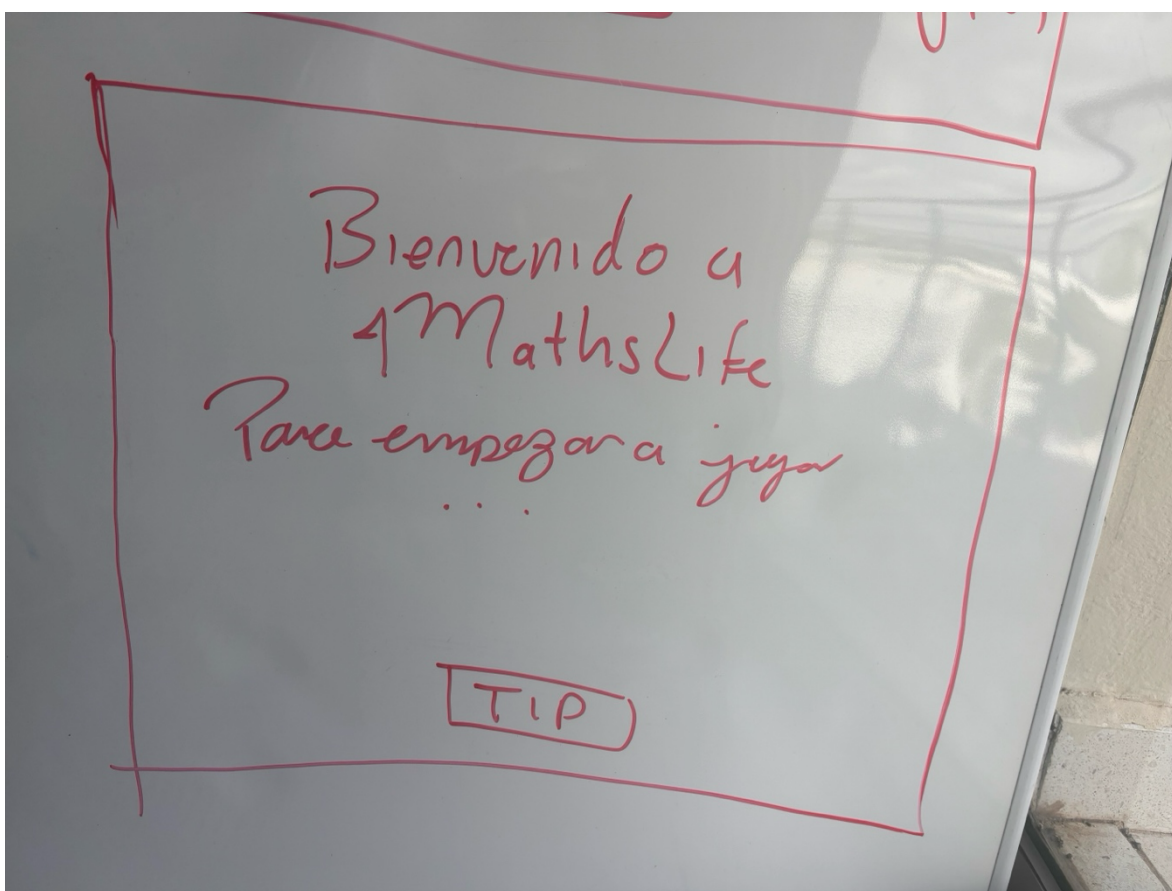 Bienvenido a
4MathsLife
Para empezar a jugar
...
TIP